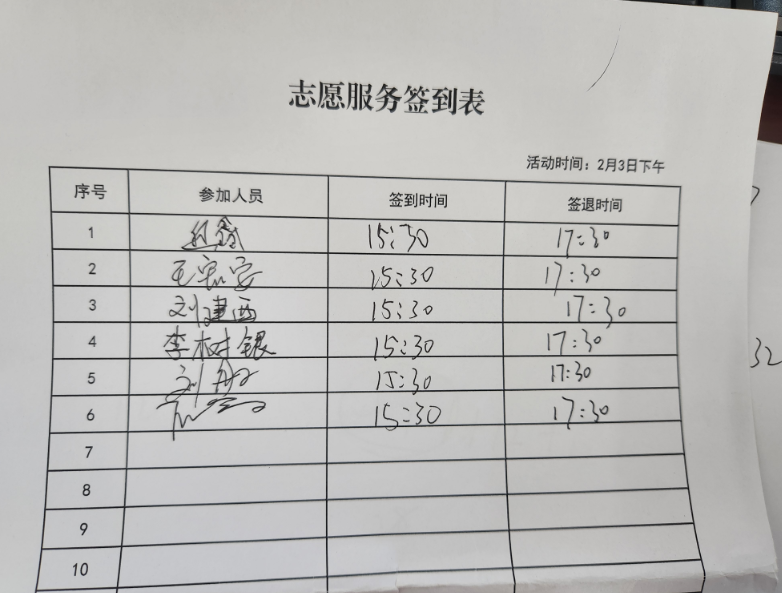 志愿服务签到表
活动时间：2月3日下午
序号 参加人员 签到时间 签退时间
1 15:30 17:30
2 15:30 17:30
3 刘建西 15:30 17:30
4 李树银 15:30 17:30
5 刘 15:30 17:30
6 15:30 17:30
7
8
9
10
32